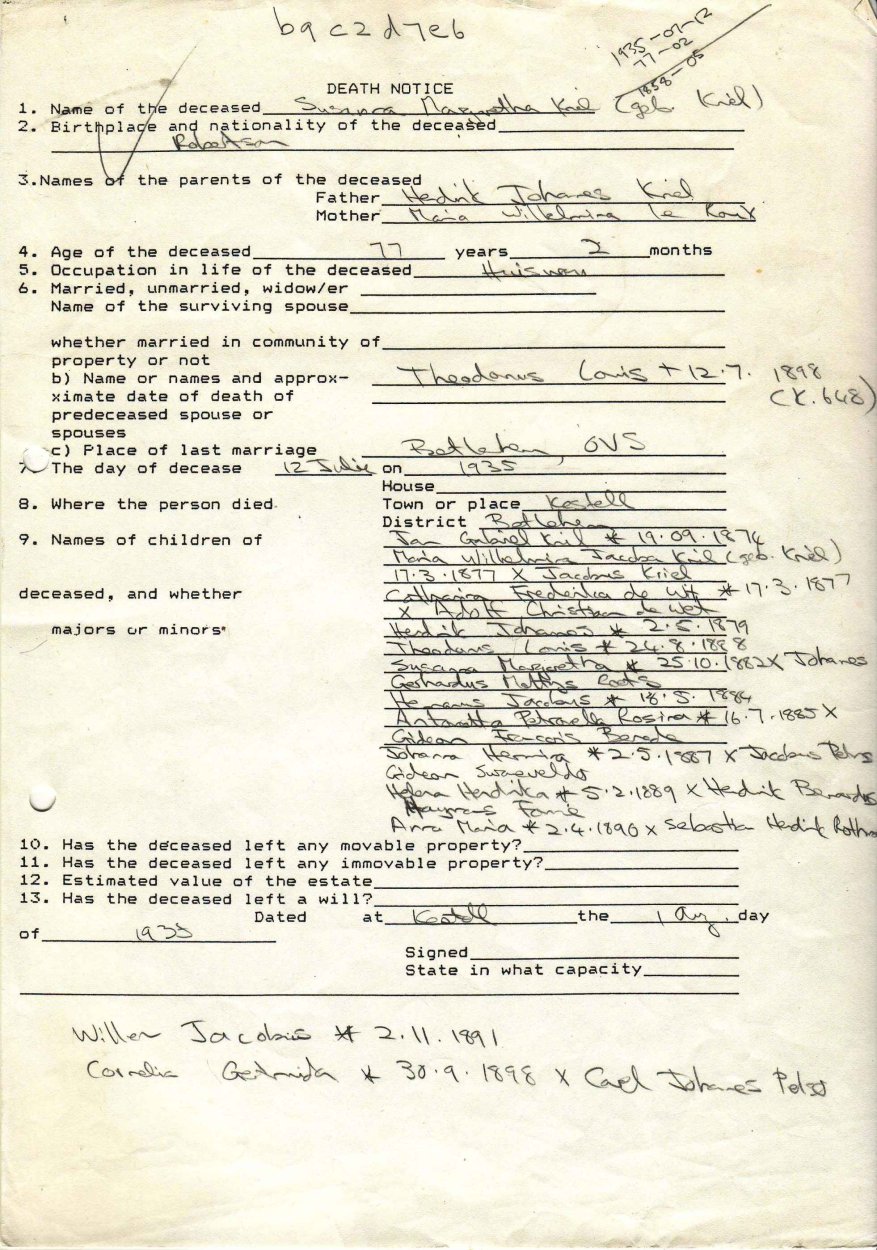 b9c2d7e6
1935-07-12
77-02
1858-05
DEATH NOTICE
1. Name of the deceased Susanna Margaretha Kriel (geb. Kriel)
2. Birthplace and nationality of the deceased
Robertson
3.Names of the parents of the deceased
Father Hedrik Johanes Kriel
Mother Maria Wilhelmina le Roux
4. Age of the deceased 77 years 2 months
5. Occupation in life of the deceased Huisvrou
6. Married, unmarried, widow/er
Name of the surviving spouse
whether married in community of
property or not
b) Name or names and approx- Theodanus Louis + 12.7. 1898
ximate date of death of (K.648)
predeceased spouse or
spouses
c) Place of last marriage Betlehem, OVS
7. The day of decease 12 Julie on 1935
House
8. Where the person died Town or place Kestell
District Betlehem
9. Names of children of Jan Gabriel Kriel * 19.09.1874
Maria Wilhelmina Jacoba Kriel (geb. Kriel)
17.3.1877 X Jacobus Kriel
deceased, and whether Catharina Frederika de Wit * 17.3.1877
X Adolf Christiaan de Wet
majors or minors Hendrik Johannes * 2.5.1879
Theodanus Louis * 24.8.1888
Susanna Margaretha * 25.10.1882 X Johanes
Gerhardus Mathys Roots
Hermanus Jacobus * 18.5.1884
Antonetta Petronella Rosina * 16.7.1885 X
Gideon Francois
Johanna Hermina * 2.5.1887 X Jacobus Petrus
Gideon Swanevelder
Helena Hendrika * 5.2.1889 X Hendrik Bernardus
Fourie
Anna Maria * 2.4.1890 X Sebastian Hedrik Rothm
10. Has the deceased left any movable property?
11. Has the deceased left any immovable property?
12. Estimated value of the estate
13. Has the deceased left a will?
Dated at Kestell the 1 Aug. day
of 1935
Signed
State in what capacity
Willem Jacobus * 2.11.1891
Cornelia Gertruida * 30.9.1898 X Carel Johanes Pelser